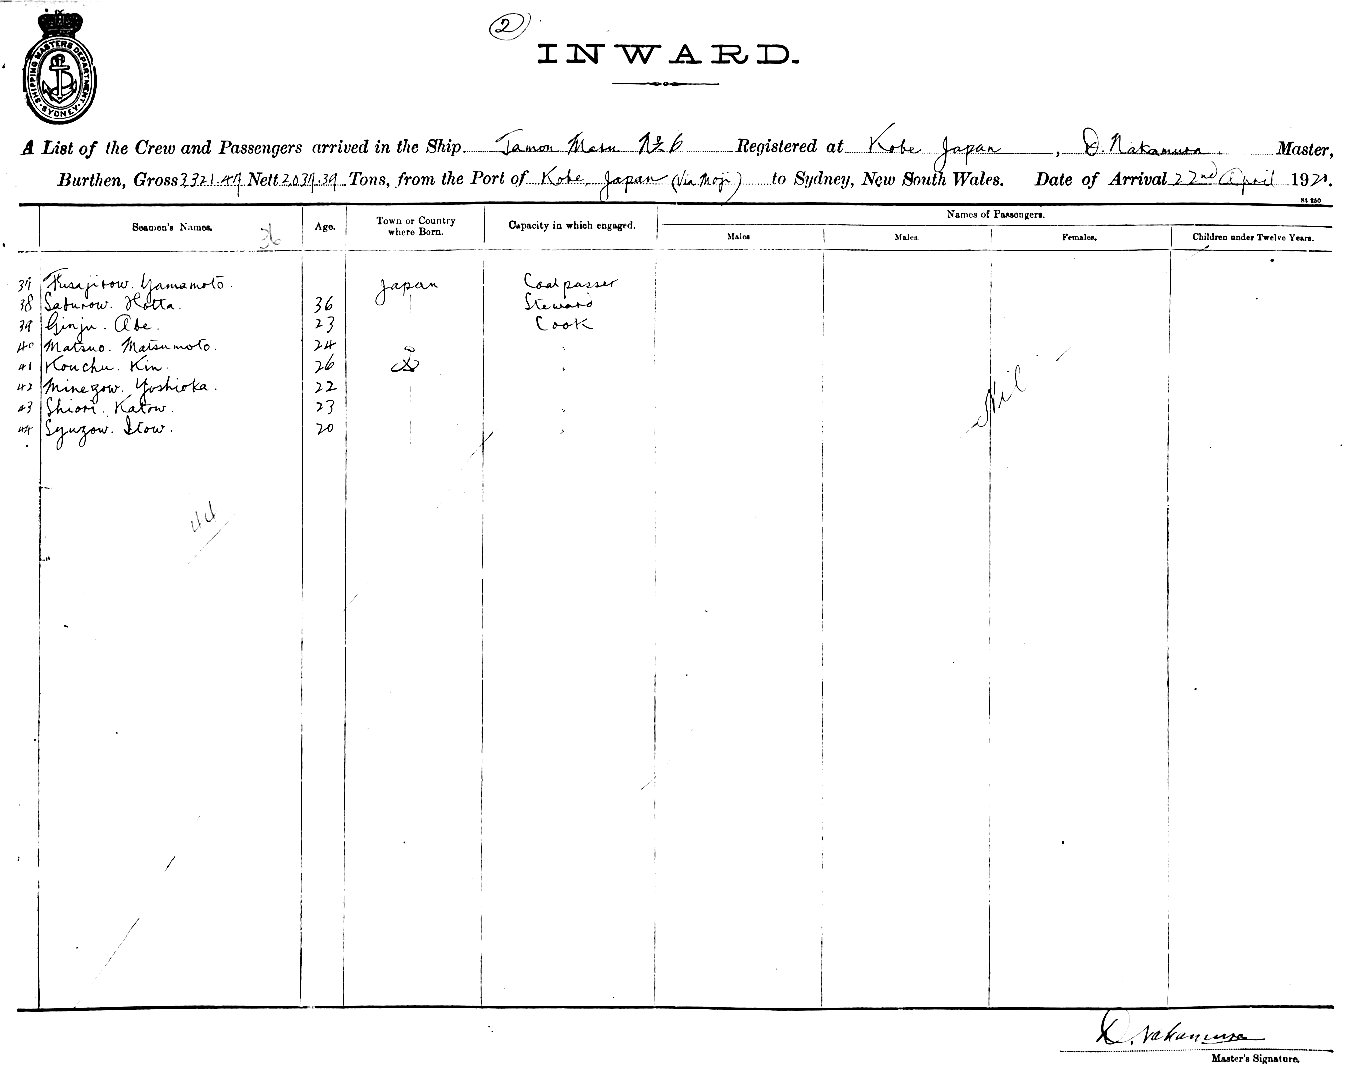 2
INWARD.
SHIPPING MASTERS DEPARTMENT SYDNEY
A List of the Crew and Passengers arrived in the Ship Tamon Maru No 6 Registered at Kobe Japan, D. Nakamura. Master,
Burthen, Gross 3321.49 Nett 2039.39 Tons, from the Port of Kobe, Japan (Via Moji) to Sydney, New South Wales. Date of Arrival 22nd April 1921.
Seamen's Names. 36 Age. Town or Country where Born. Capacity in which engaged. Names of Passengers.
Males Males. Females. Children under Twelve Years.
37 Fusajirow. Yamamoto. Japan Coalpasser
38 Saburow. Hotta. 36 Steward
39 Ginju. Abe. 23 Cook
40 Matsuo. Matsumoto. 24
41 Kouchu. Kin. 26
42 Minegow. Yoshioka. 22
43 Shiori. Katow. 23
44 Syuzow. Itow. 20
Nil
44
D. Nakamura
Master's Signature.